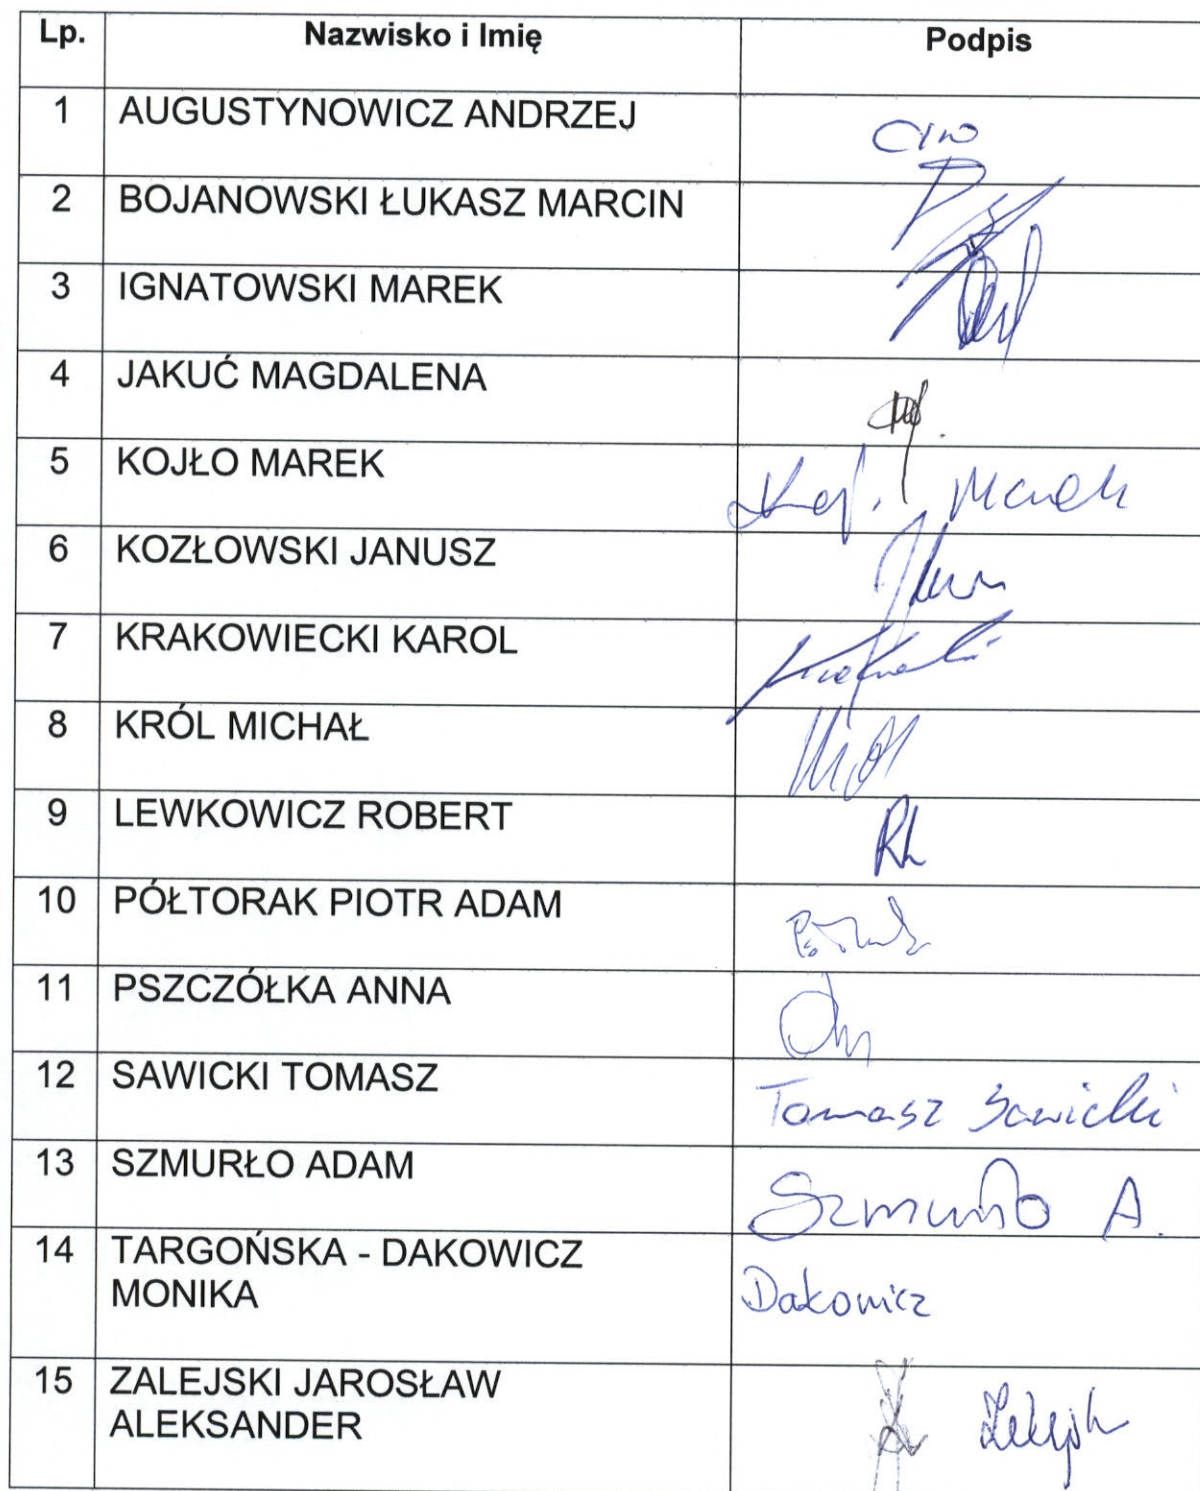 Lp. Nazwisko i Imię Podpis
1 AUGUSTYNOWICZ ANDRZEJ
2 BOJANOWSKI ŁUKASZ MARCIN
3 IGNATOWSKI MAREK
4 JAKUĆ MAGDALENA
5 KOJŁO MAREK Marek
6 KOZŁOWSKI JANUSZ
7 KRAKOWIECKI KAROL
8 KRÓL MICHAŁ
9 LEWKOWICZ ROBERT
10 PÓŁTORAK PIOTR ADAM
11 PSZCZÓŁKA ANNA
12 SAWICKI TOMASZ Tomasz Sawicki
13 SZMURŁO ADAM Szmurło A.
14 TARGOŃSKA - DAKOWICZ
MONIKA Dakowicz
15 ZALEJSKI JAROSŁAW
ALEKSANDER